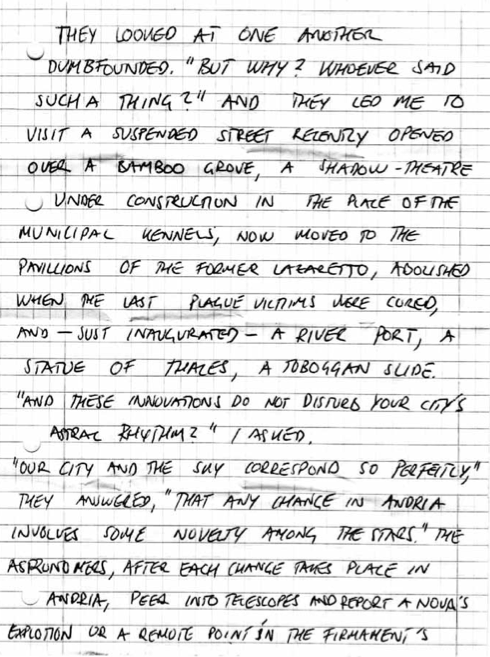 THEY LOOKED AT ONE ANOTHER
DUMBFOUNDED. "BUT WHY? WHOEVER SAID
SUCH A THING?" AND THEY LED ME TO
VISIT A SUSPENDED STREET RECENTLY OPENED
OVER A BAMBOO GROVE, A SHADOW-THEATRE
UNDER CONSTRUCTION IN THE PLACE OF THE
MUNICIPAL KENNELS, NOW MOVED TO THE
PAVILLIONS OF THE FORMER LAZARETTO, ABOLISHED
WHEN THE LAST PLAGUE VICTIMS WERE CURED,
AND - JUST INAUGURATED - A RIVER PORT, A
STATUE OF THALES, A TOBOGGAN SLIDE.
"AND THESE INNOVATIONS DO NOT DISTURB YOUR CITY'S
ASTRAL RHYTHM?" I ASKED.
"OUR CITY AND THE SKY CORRESPOND SO PERFECTLY,"
THEY ANSWERED, "THAT ANY CHANGE IN ANDRIA
INVOLVES SOME NOVELTY AMONG THE STARS." THE
ASTRONOMERS, AFTER EACH CHANGE TAKES PLACE IN
ANDRIA, PEER INTO TELESCOPES AND REPORT A NOVA'S
EXPLOTION OR A REMOTE POINT IN THE FIRMAMENT'S